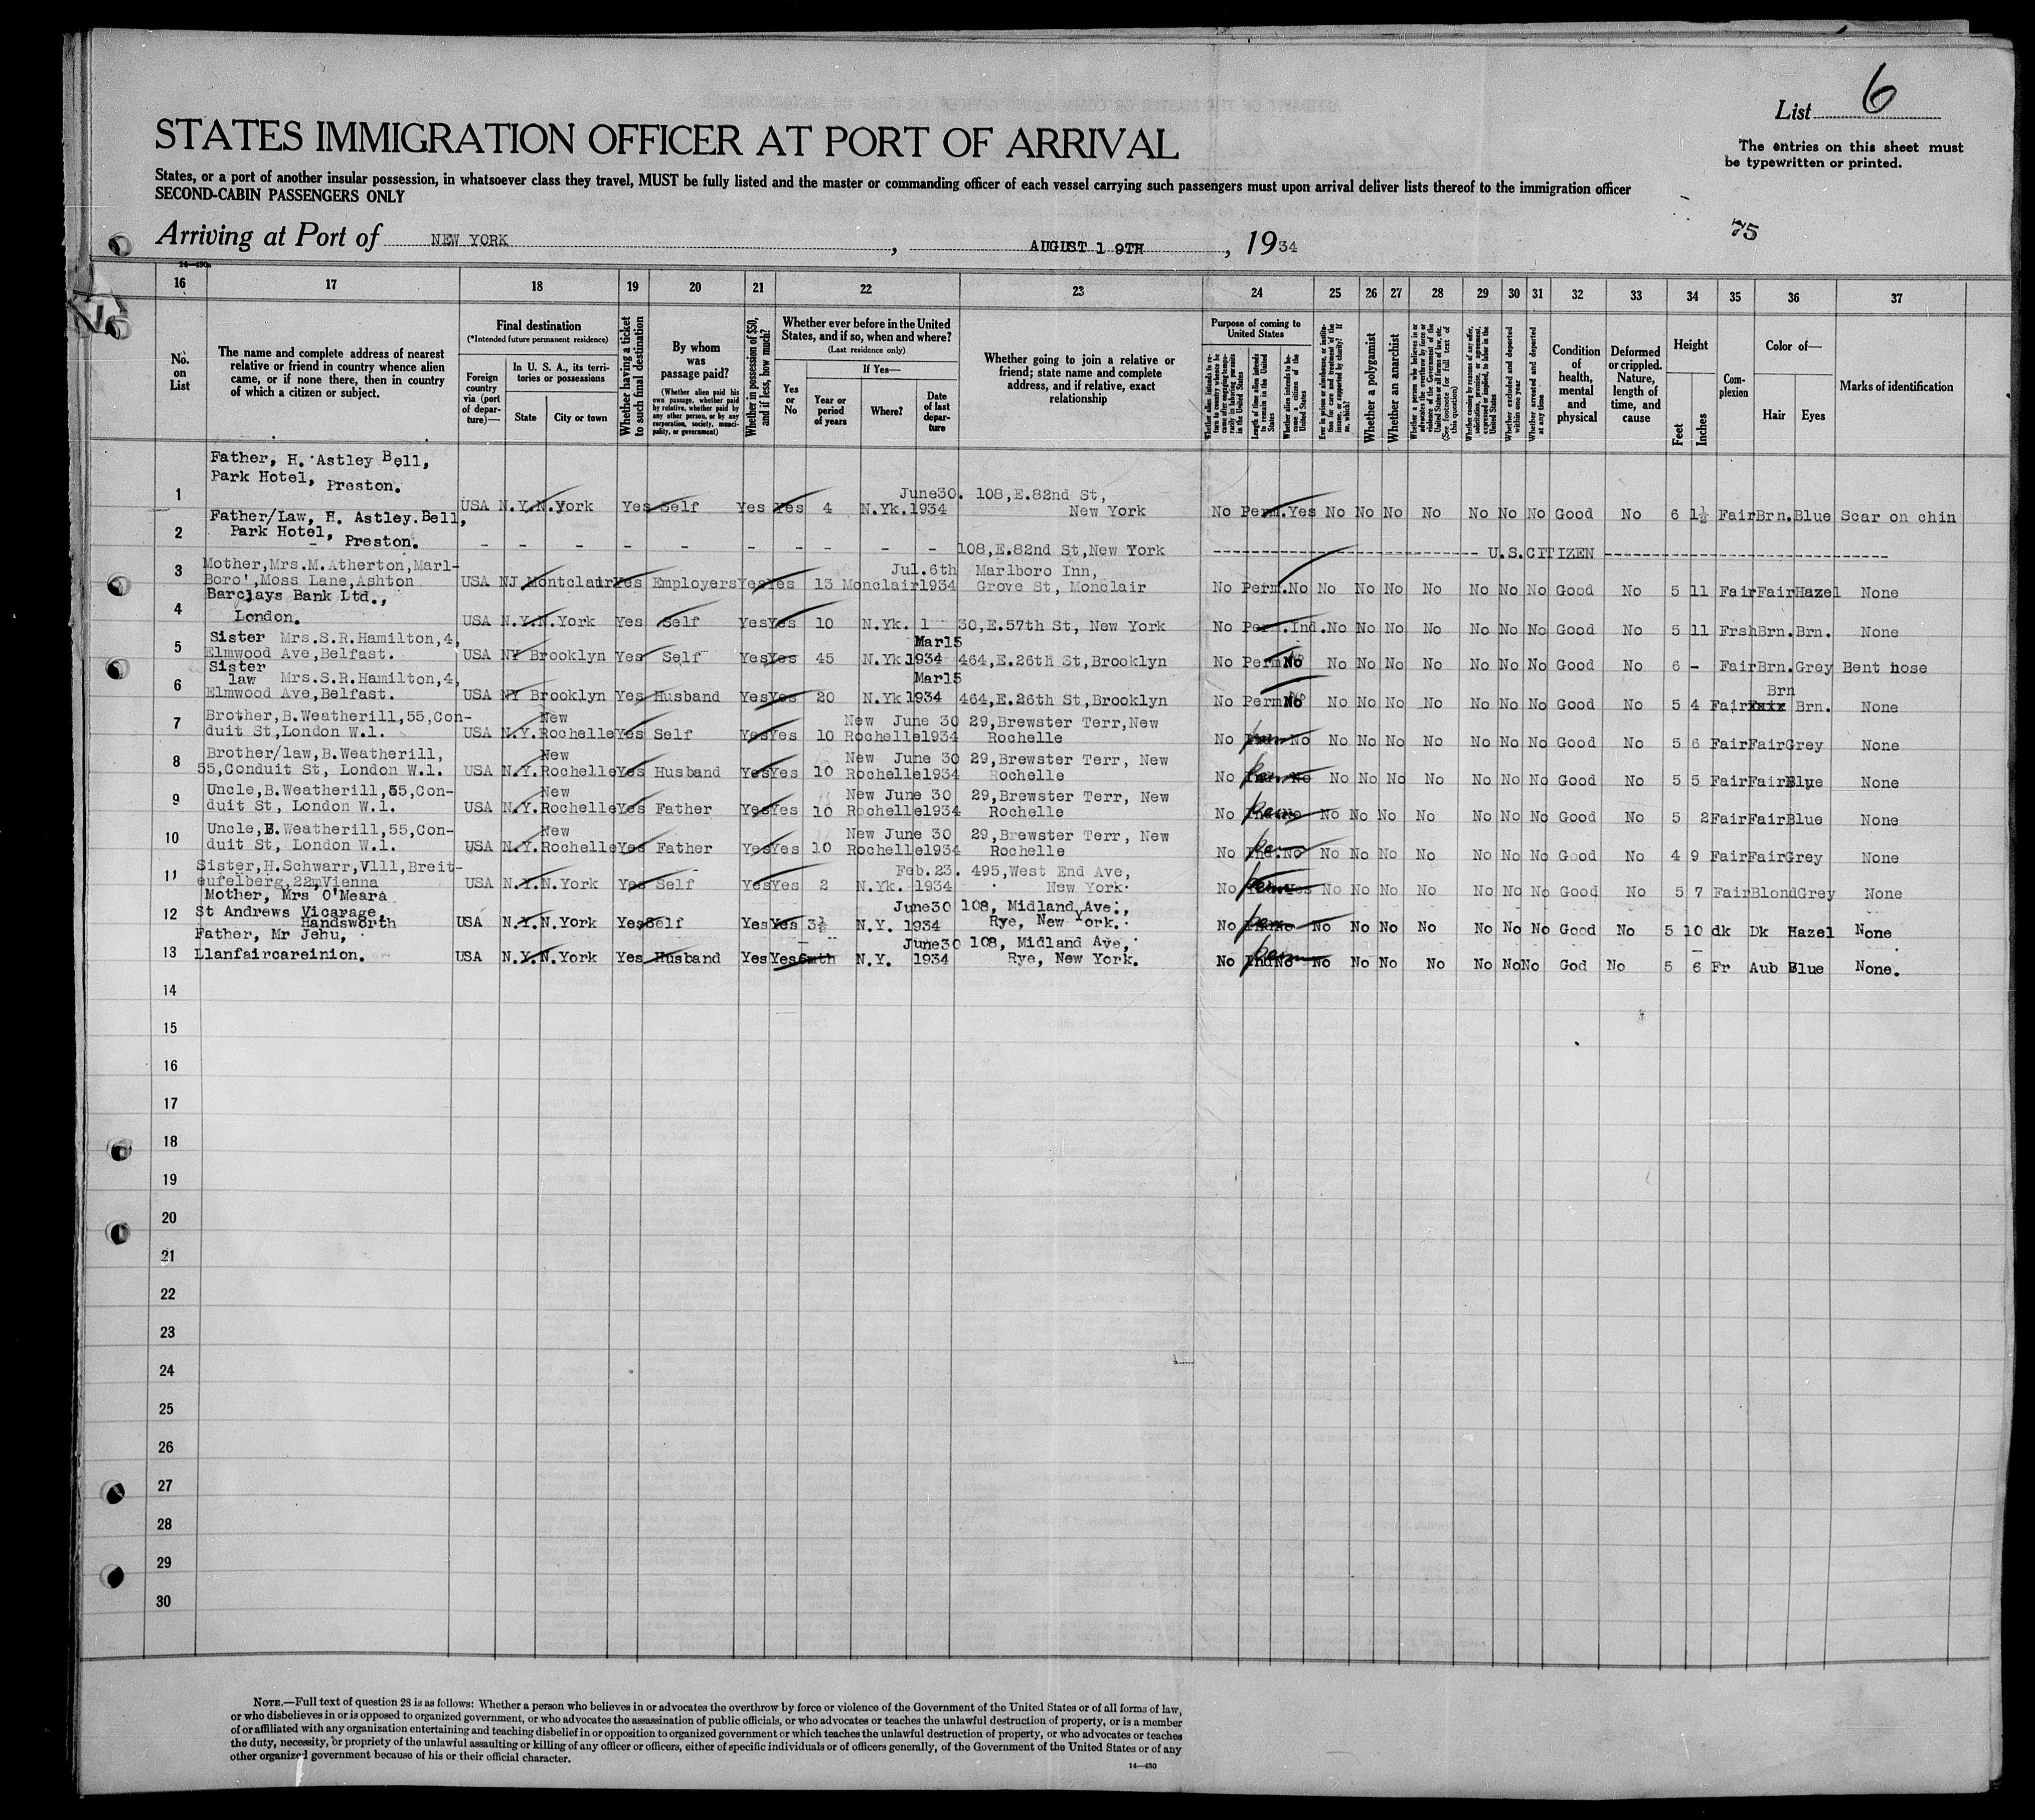 List 6
STATES IMMIGRATION OFFICER AT PORT OF ARRIVAL
The entries on this sheet must
be typewritten or printed.
States, or a port of another insular possession, in whatsoever class they travel, MUST be fully listed and the master or commanding officer of each vessel carrying such passengers must upon arrival deliver lists thereof to the immigration officer
SECOND-CABIN PASSENGERS ONLY
75
Arriving at Port of NEW YORK , AUGUST 19TH , 1934
14—430a
16 17 18 19 20 21 22 23 24 25 26 27 28 29 30 31 32 33 34 35 36 37
No. on List
The name and complete address of nearest
relative or friend in country whence alien
came, or if none there, then in country
of which a citizen or subject.
Final destination
(*Intended future permanent residence)
Foreign country via (port of departure)—
In U. S. A., its territories or possessions
State
City or town
Whether having a ticket to such final destination
By whom was passage paid?
(Whether alien paid his own passage, whether paid by relative, whether paid by any other person, or by any corporation, society, municipality, or government)
Whether in possession of $50, and if less, how much?
Whether ever before in the United States, and if so, when and where?
(Last residence only)
Yes or No
If Yes—
Year or period of years
Where?
Date of last departure
Whether going to join a relative or
friend; state name and complete
address, and if relative, exact
relationship
Purpose of coming to United States
Whether alien intends to return to country whence he came after engaging temporarily in laboring pursuits in the United States
Length of time alien intends to remain in the United States
Whether alien intends to become a citizen of the United States
Ever in prison or almshouse, or institution for care and treatment of the insane, or supported by charity? If so, which?
Whether a polygamist
Whether an anarchist
Whether a person who believes in or advocates the overthrow by force or violence of the Government of the United States or all forms of law, etc. (See footnote for full text of this question)
Whether coming by reasons of any offer, solicitation, promise, or agreement, expressed or implied, to labor in the United States
Whether excluded and deported within one year
Whether arrested and deported at any time
Condition of health, mental and physical
Deformed or crippled. Nature, length of time, and cause
Height
Feet
Inches
Complexion
Color of—
Hair
Eyes
Marks of identification
Father, H. Astley Bell,
Park Hotel, Preston.
1 USA N.Y. N.York Yes Self Yes Yes 4 N.Yk. June30. 1934 108,E.82nd St, New York No Perm. Yes No No No No No No No Good No 6 1½ Fair Brn. Blue Scar on chin
Father/Law, H. Astley.Bell,
Park Hotel, Preston.
2 - - - - - - - - - - 108,E.82nd St,New York U.S.CITIZEN
3 Mother,Mrs.M.Atherton,Marl-
Boro',Moss Lane,Ashton
USA NJ Montclair Yes Employers Yes Yes 13 Monclair Jul.6th 1934 Marlboro Inn, Grove St, Monclair No Perm. No No No No No No No No Good No 5 11 Fair Fair Hazel None
Barclays Bank Ltd.,
4 London. USA N.Y. N.York Yes Self Yes Yes 10 N.Yk. 1 30,E.57th St, New York No Ind. No No No No No No No Good No 5 11 Frsh Brn. Brn. None
Sister Mrs.S.R.Hamilton,4,
5 Elmwood Ave,Belfast. USA NY Brooklyn Yes Self Yes Yes 45 N.Yk Mar15 1934 464,E.26th St,Brooklyn No Perm No No No No No No No No Good No 6 - Fair Brn. Grey Bent nose
Sister
law Mrs.S.R.Hamilton,4,
6 Elmwood Ave,Belfast. USA NY Brooklyn Yes Husband Yes Yes 20 N.Yk Mar15 1934 464,E.26th St,Brooklyn No Perm No No No No No No No No Good No 5 4 Fair Brn Brn. None
7 Brother,B.Weatherill,55,Con-
duit St,London W.1. USA N.Y. New Rochelle Yes Self Yes Yes 10 New Rochelle June 30 1934 29,Brewster Terr,New Rochelle No No No No No No No No No Good No 5 6 Fair Fair Grey None
8 Brother/law,B.Weatherill,
55,Conduit St, London W.1. USA N.Y. New Rochelle Yes Husband Yes Yes 10 New Rochelle June 30 1934 29,Brewster Terr, New Rochelle No No No No No No No No No Good No 5 5 Fair Fair Blue None
9 Uncle,B.Weatherill,55,Con-
duit St, London W.1. USA N.Y. New Rochelle Yes Father Yes Yes 10 New Rochelle June 30 1934 29,Brewster Terr, New Rochelle No No No No No No No No No Good No 5 2 Fair Fair Blue None
10 Uncle,B.Weatherill,55,Con-
duit St, London W.1. USA N.Y. New Rochelle Yes Father Yes Yes 10 New Rochelle June 30 1934 29,Brewster Terr, New Rochelle No Ind. No No No No No No No No Good No 4 9 Fair Fair Grey None
11 Sister,H.Schwarr,Vlll,Breit-
eufelberg,22mVienna USA N.Y. N.York Yes Self Yes Yes 2 N.Yk. Feb.23. 1934 495,West End Ave, New York. No Yes No No No No No No No Good No 5 7 Fair Blond Grey None
Mother, Mrs O'Meara
12 St Andrews Vicarage,
Handsworth USA N.Y. N.York Yes Self Yes Yes 3½ N.Y. June30 1934 108, Midland Ave., Rye, New York. No No No No No No No No No Good No 5 10 dk Dk Hazel None
Father, Mr Jehu,
13 Llanfaircareinion. USA N.Y. N.York Yes Husband Yes Yes 6mth N.Y. June30 1934 108, Midland Ave, Rye, New York. No Ind No No No No No No No No God No 5 6 Fr Aub Blue None.
14
15
16
17
18
19
20
21
22
23
24
25
26
27
28
29
30
NOTE.—Full text of question 28 is as follows: Whether a person who believes in or advocates the overthrow by force or violence of the Government of the United States or of all forms of law,
or who disbelieves in or is opposed to organized government, or who advocates the assassination of public officials, or who advocates or teaches the unlawful destruction of property, or is a member
of or affiliated with any organization entertaining and teaching disbelief in or opposition to organized government or which teaches the unlawful destruction of property, or who advocates or teaches
the duty, necessity, or propriety of the unlawful assaulting or killing of any officer or officers, either of specific individuals or of officers generally, of the Government of the United States or of any
other organized government because of his or their official character.
14—430